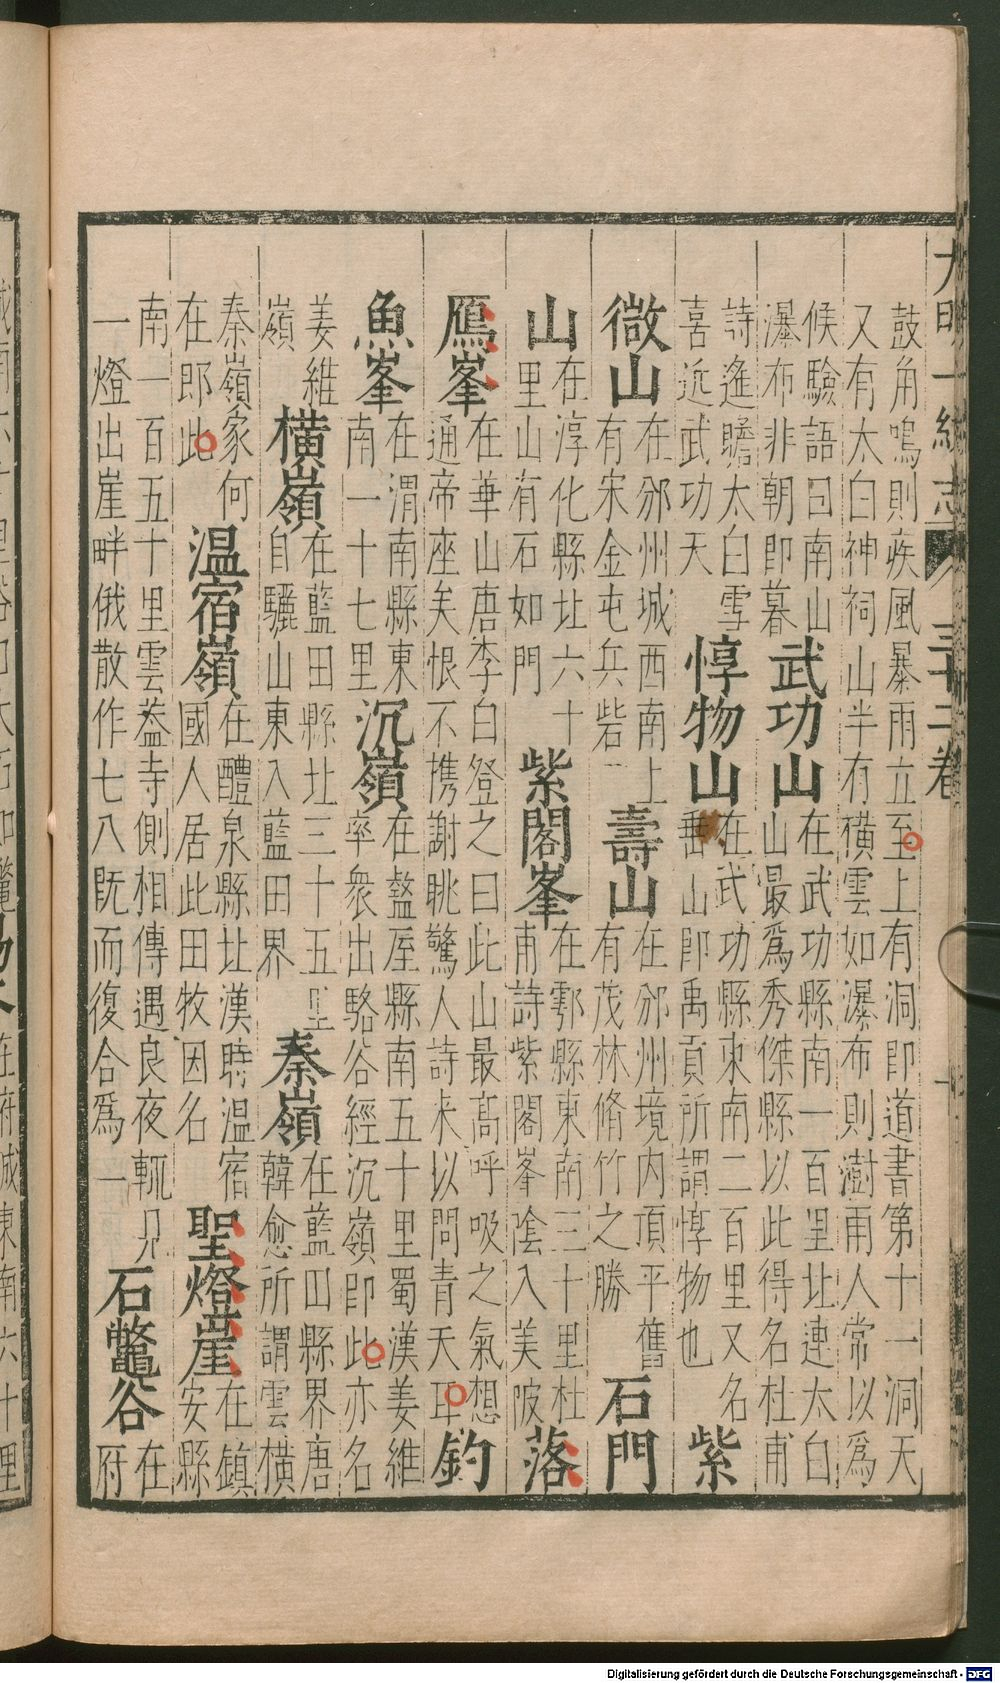 大明一統志 三十二卷
鼓角鳴則疾風暴雨立至上有洞即道書第十一洞天
又有太白神祠山半有橫雲如瀑布則澍雨人常以為
候驗語曰南山
瀑布非朝即暮
武功山
在武功縣南一百里北連太白
山最爲秀傑縣以此得名杜甫
詩遙瞻太白雪
喜近武功天
惇物山
在武功縣東南二百里又名
垂山即禹貢所謂惇物也
紫
微山
在邠州城西南上
有宋金屯兵砦
壽山
在邠州境内頂平舊
有茂林脩竹之勝
石門
山
在淳化縣北六十
里山有石如門
紫閣峯
在鄠縣東南三十里杜
甫詩紫閣峯陰入美陂
落
鴈峯
在華山唐李白登之曰此山最高呼吸之氣想
通帝座矣恨不携謝眺驚人詩来以問青天耳
釣
魚峯
在渭南縣東
南一十七里
沉嶺
在盩厔縣南五十里蜀漢姜維
率衆出駱谷經沉嶺即此亦名
姜維
嶺
橫嶺
在藍田縣北三十五里
自驪山東入藍田界
秦嶺
在藍田縣界唐
韓愈所謂雲橫
秦嶺家何
在即此
温宿嶺
在醴泉縣北漢時温宿
國人居此田牧因名
聖燈崖
在鎮
安縣
南一百五十里雲葢寺側相傳遇良夜輒見
一燈出崖畔俄散作七八既而復合爲一
石鼈谷
在
府
在府城東南六十里
Digitalisierung gefördert durch die Deutsche Forschungsgemeinschaft - DFG